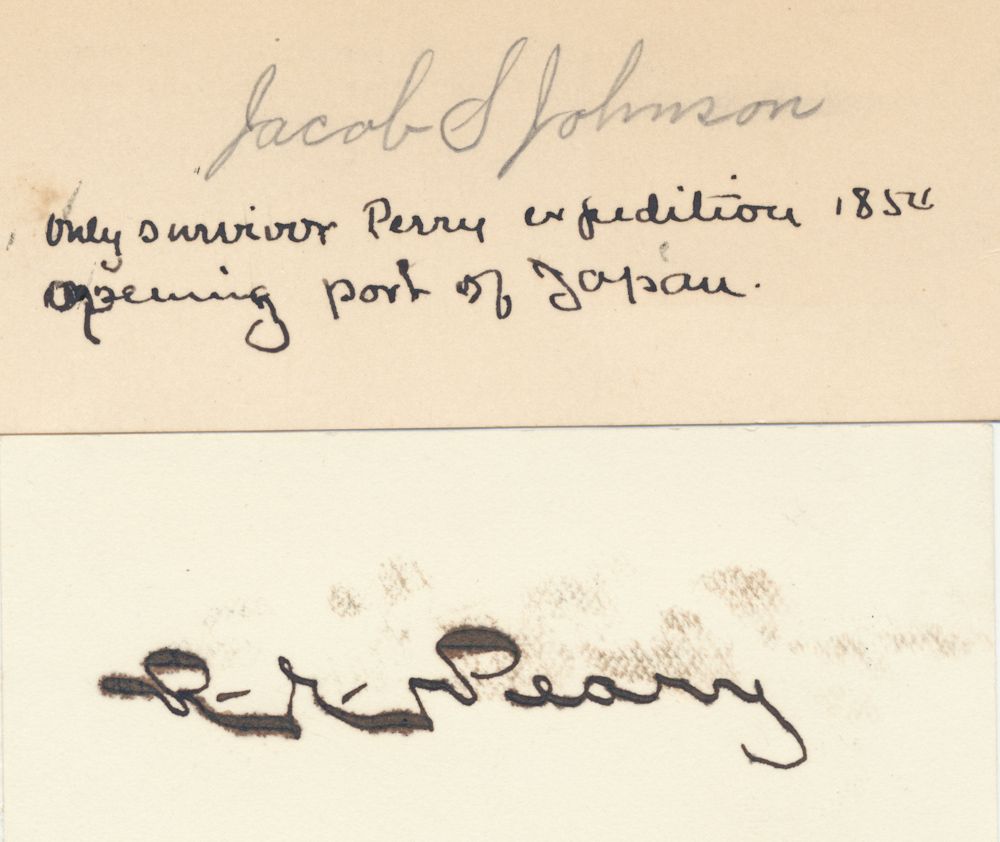 Jacob S Johnson
only survivor Perry expedition 1854
opening port of Japan.
R. E. Peary